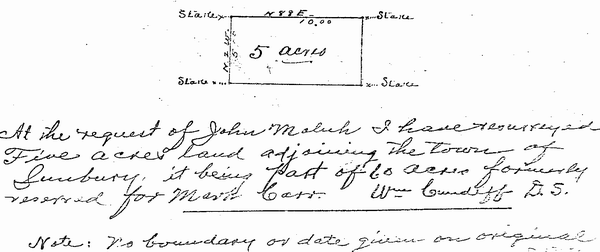 Stake N 88 E Stake
10.00
N 2 W
5
5 acres
Stake Stake
At the request of John I have resurveyed
Five acres land adjoining the town of
Sunbury, it being Part of 60 acres formerly
reserved for Mark Carr. Wm Cundiff D.S.
Note: No boundary or date given on original